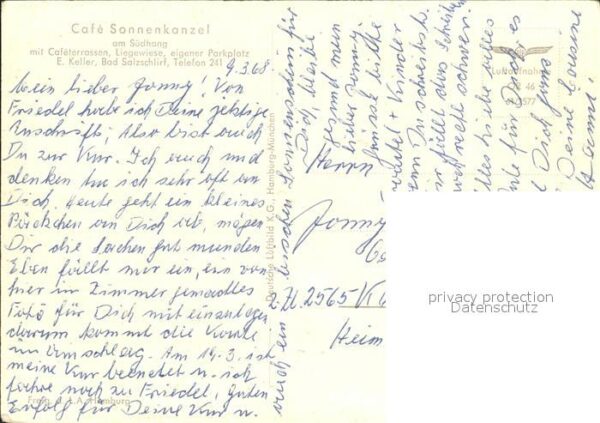 Café Sonnenkanzel
am Südhang
mit Caféterrassen, Liegewiese, eigener Parkplatz
E. Keller, Bad Salzschlirf, Telefon 241
9.3.68
Mein lieber Jonny! Von
Friedel habe ich Deine jetzige
Anschrift; Also bist auch
Du zur Kur. Ich auch und
denken tu ich sehr oft an
Dich. Heute geht ein kleines
Päckchen an Dich ab, mögen
Dir die Sachen gut munden
Eben fällt mir ein, ein von
hier im Zimmer gemachtes
Foto für Dich mit einzulegen
darum kommt die Karte
im Umschlag. Am 14.3. ist
meine Kur beendet u. ich
fahre noch zu Friedel, Guten
Erfolg für Deine Kur u.
auch ein bisschen Sonnenschein für
Dich, bleibe
gesund mein
lieber Jonny
Grüsse bitte
+ Kinder
alles liebe
für Dich es
Dich
Deine Cousine
Hanni.
Herrn
Jonny
2 2565
Heim
Deutsche Luftbild K.G., Hamburg-München
Luftaufnahme
Freig. d. L.A. Hamburg
privacy protection
Datenschutz